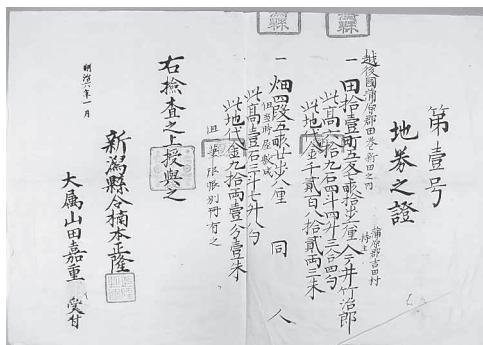 第壹号
地券之證
越後國蒲原郡田巻新田之内
蒲原郡吉田村
持主
一田拾壹町五反五畝拾歩壹厘 今井竹治郎
此高六拾九石四斗四升三合四勺
此地代金千貳百八拾貳両三朱
一畑四反五畝廿歩八厘 同人
但当時屋敷成
此高壹石三十七升八勺
此地代金九拾両壹分壹朱
但 限帳別冊有之
右撿査之上授與之
明治六年一月
新潟縣令楠本正隆
大属山田嘉重 受付
新潟縣
新潟縣